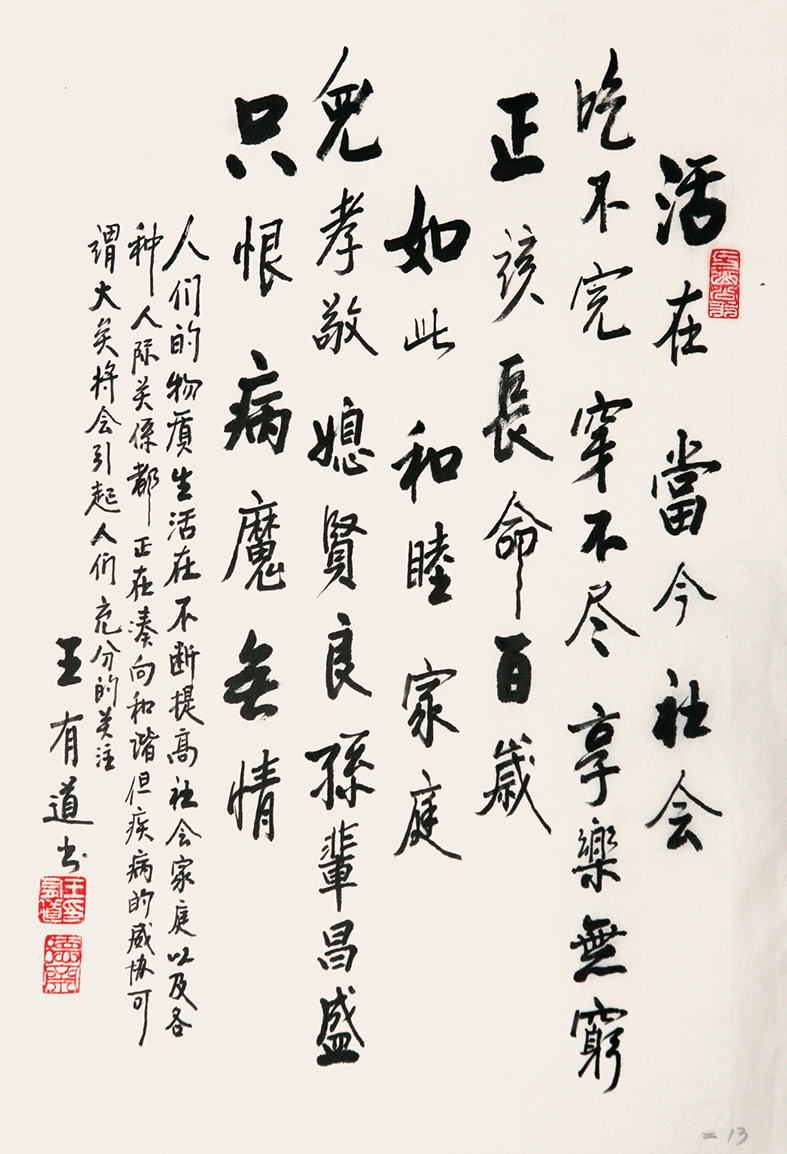 活在當今社会
吃不完穿不尽享樂無窮
正該長命百歲
如此和睦家庭
兒孝敬媳賢良孫輩昌盛
只恨病魔无情
人们的物质生活在不断提高社会家庭以及各
种人际关係都正在凑向和谐但疾病的威协可
谓大矣将会引起人们充分的关注
王有道书
=13